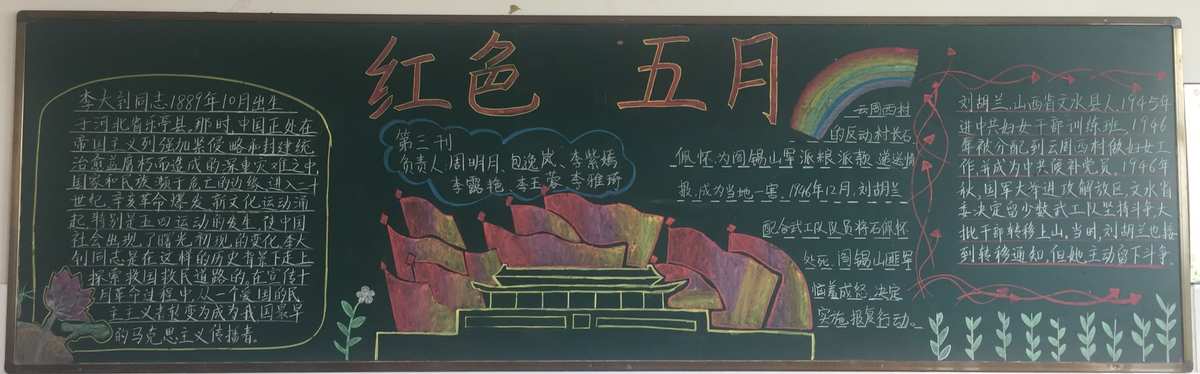 红色 五月
李大钊同志1889年10月出生
于河北省乐亭县。那时,中国正处在
帝国主义列强加紧侵略和封建统
治愈益腐朽而造成的深重灾难之中
国家和民族濒于危亡的边缘,进入二十
世纪,辛亥革命爆发,新文化运动涌
起,特别是五四运动的发生,使中国
社会出现了曙光初现的变化,李大
钊同志是在这样的历史背景下走上
探索救国救民道路的,在宣传十
月革命过程中,从一个爱国的民
主主义者转变为成为我国最早
的马克思主义传播者。
第三刊
负责人:周明月、包逸岚、李紫嫣
李露艳、李玉蒙、李雅琦
云周西村
的反动村长石
佩怀,为阎锡山军派粮派款,递送情
报,成为当地一害。1946年12月,刘胡兰
配合武工队队员将石佩怀
处死,阎锡山匪军
恼羞成怒,决定
实施报复行动。
刘胡兰,山西省文水县人,1945年
进中共妇女干部训练班,1946
年被分配到云周西村做妇女工
作,并成为中共候补党员,1946年
秋,国军大举进攻解放区,文水省
委决定留少数武工队坚持斗争,大
批干部转移上山。当时,刘胡兰也接
到转移通知,但她主动留下斗争。